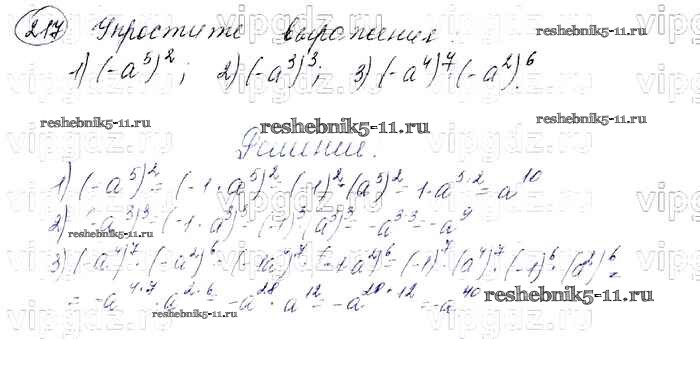 217 Упростите выражения:
1) (-a⁵)²; 2) (-a³)³; 3) (-a⁴)⁷·(-a²)⁶.
reshebnik5-11.ru
reshebnik5-11.ru
Решение.
1) (-a⁵)² = (-1·a⁵)² = (-1)²·(a⁵)² = 1·a⁵·² = a¹⁰
2) (-a³)³ = (-1·a³)³ = (-1)³·(a³)³ = -a³·³ = -a⁹
reshebnik5-11.ru
3) (-a⁴)⁷·(-a²)⁶ = (-1·a⁴)⁷·(-1·a²)⁶ = (-1)⁷·(a⁴)⁷·(-1)⁶·(a²)⁶ =
= -a⁴·⁷·a²·⁶ = -a²⁸·a¹² = -a²⁸⁺¹² = -a⁴⁰
reshebnik5-11.ru
reshebnik5-11.ru
vipgdz.ru vipgdz.ru vipgdz.ru